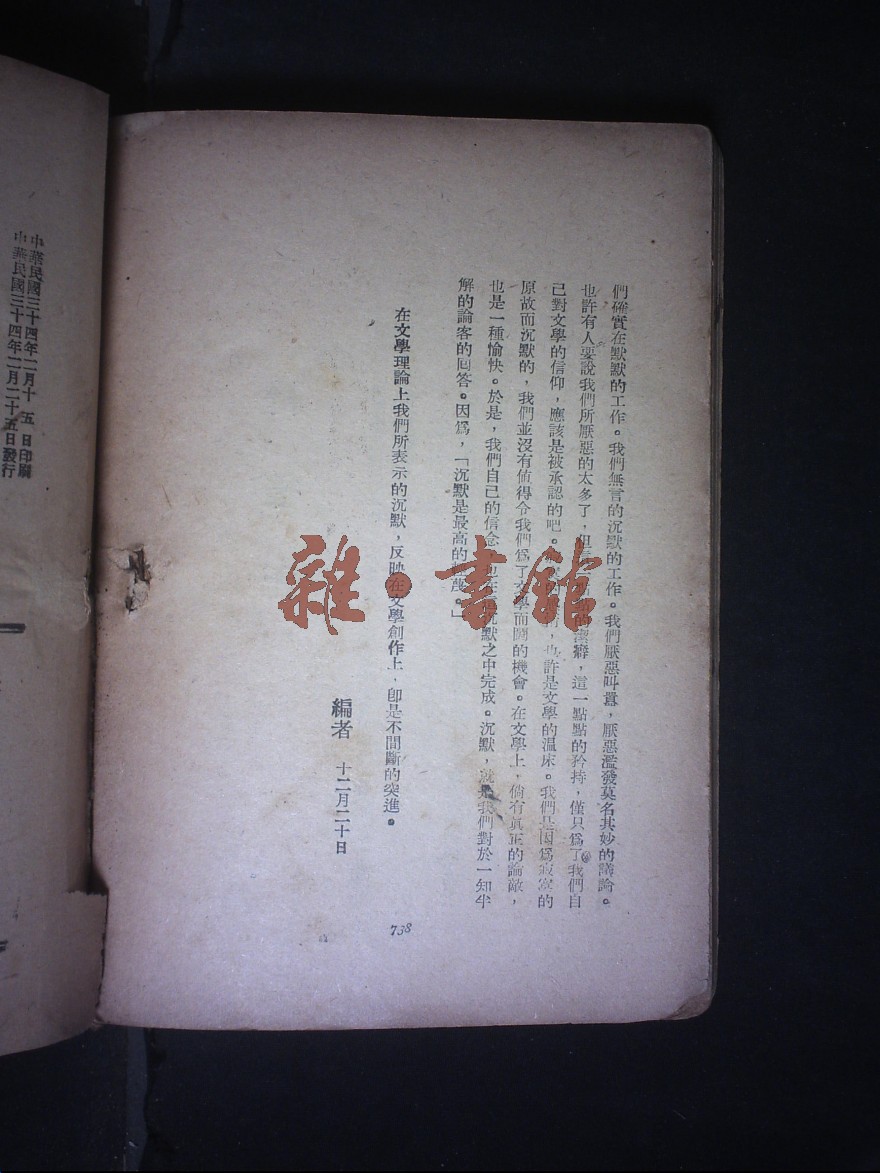 們確實在默默的工作。我們無言的沉默的工作。我們厭惡叫囂,厭惡濫發莫名其妙的議論。
也許有人要說我們所厭惡的太多了,但 的潔癖,這一點點的矜持,僅只爲了我們自
己對文學的信仰,應該是被承認的吧。 也許是文學的温床。我們是因爲寂寞的
原故而沉默的,我們並沒有値得令我們爲了文學而鬪的機會。在文學上,倘有眞正的論敵,
也是一種愉快。於是,我們自己的信念,也在這沉默之中完成。沉默,就是我們對於一知半
解的論客的囘答。因爲,「沉默是最高的 蔑。」
在文學理論上我們所表示的沉默,反映在文學創作上,卽是不間斷的突進。
編者 十二月二十日
738
雜·書館
中華民國三十四年二月十五日印刷
中華民國三十四年二月二十五日發行